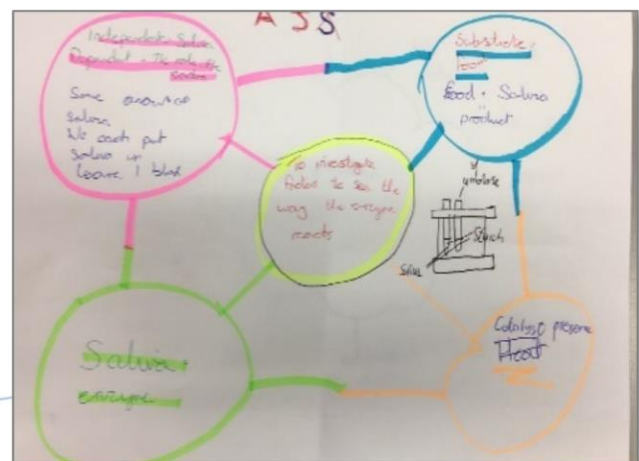 A J S
Independent = Saliva
Dependent = The rate the
Same amount of
saliva
We each put
saliva in
leave 1 blank
Substrate =
food
food + Saliva
=
product
To investigate
factor to see the
way the enzyme
reacts
amylase
Starch
Saliva =
enzyme
Catalyst presence
Heat